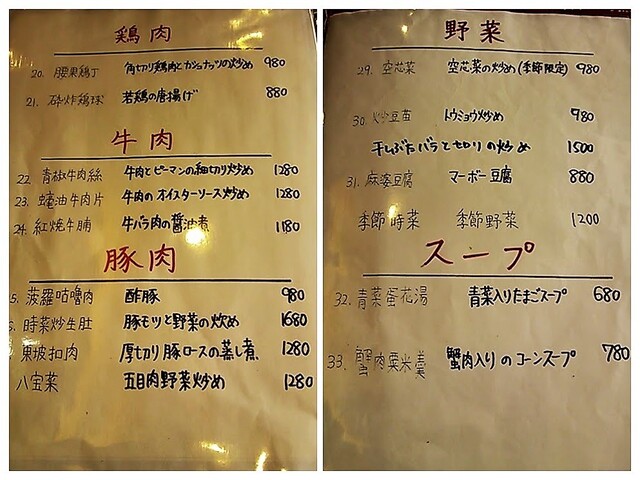 鶏肉
20. 腰果鶏丁 角切り鶏肉とカシュナッツの炒め 980
21. 砕炸鶏球 若鶏の唐揚げ 880
牛肉
22. 青椒牛肉絲 牛肉とピーマンの細切り炒め 1280
23. 蠔油牛肉片 牛肉のオイスターソース炒め 1280
24. 紅焼牛腩 牛バラ肉の醤油煮 1180
豚肉
5. 菠羅咕嚕肉 酢豚 980
時菜炒生肚 豚モツと野菜の炒め 1680
東坡扣肉 厚切り豚ロースの蒸し煮 1280
八宝菜 五目肉野菜炒め 1280
野菜
29. 空芯菜 空芯菜の炒め(季節限定) 980
30. 炒豆苗 トウミョウ炒め 980
干しぶたバラとセロリの炒め 1500
31. 麻婆豆腐 マーボー豆腐 880
季節時菜 季節野菜 1200
スープ
32. 青菜蛋花湯 青菜入りたまごスープ 680
33. 蟹肉粟米羹 蟹肉入りのコーンスープ 780